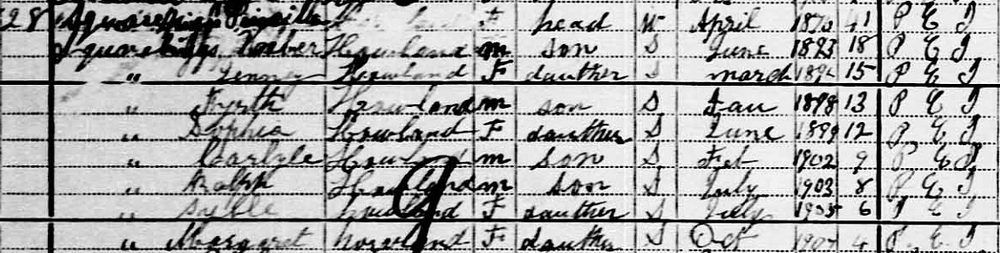 28 F head W April 1870 41 P E I
Howland m son S June 1893 18 P E I
" Jenney Howland F dauther S march 1896 15 P E I
" Fyrth Howland m son S Jan 1898 13 P E I
" Sophia Howland F dauther S June 1899 12 P E I
" Carlyle Howland m son S Feb 1902 9 P E I
" Ralph Howland m son S July 1903 8 P E I
" Howland F dauther S July 1905 6 P E I
" Margaret Howland F dauther S Oct 1907 4 P E I